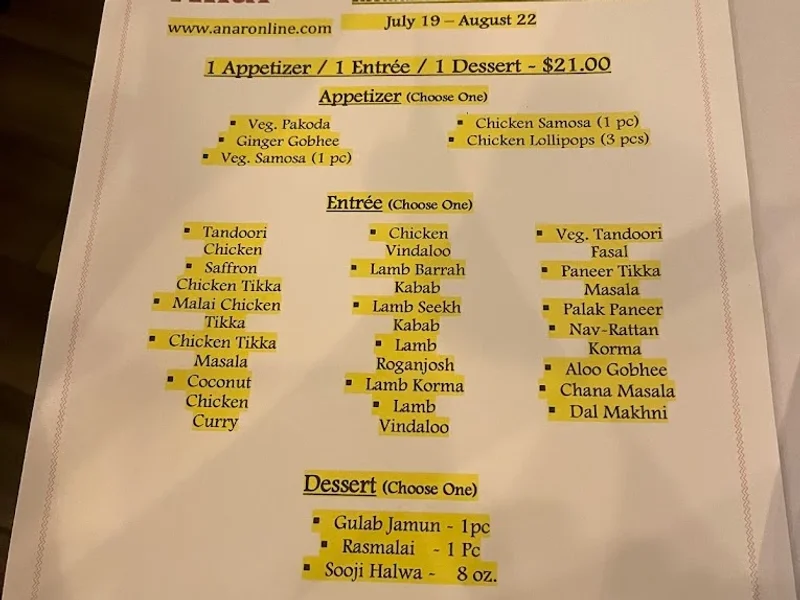 www.anaronline.com
July 19 – August 22
1 Appetizer / 1 Entrée / 1 Dessert - $21.00
Appetizer (Choose One)
▪ Veg. Pakoda
▪ Ginger Gobhee
▪ Veg. Samosa (1 pc)
▪ Chicken Samosa (1 pc)
▪ Chicken Lollipops (3 pcs)
Entrée (Choose One)
▪ Tandoori
Chicken
▪ Saffron
Chicken Tikka
▪ Malai Chicken
Tikka
▪ Chicken Tikka
Masala
▪ Coconut
Chicken
Curry
▪ Chicken
Vindaloo
▪ Lamb Barrah
Kabab
▪ Lamb Seekh
Kabab
▪ Lamb
Roganjosh
▪ Lamb Korma
▪ Lamb
Vindaloo
▪ Veg. Tandoori
Fasal
▪ Paneer Tikka
Masala
▪ Palak Paneer
▪ Nav-Rattan
Korma
▪ Aloo Gobhee
▪ Chana Masala
▪ Dal Makhni
Dessert (Choose One)
▪ Gulab Jamun - 1pc
▪ Rasmalai - 1 Pc
▪ Sooji Halwa - 8 oz.